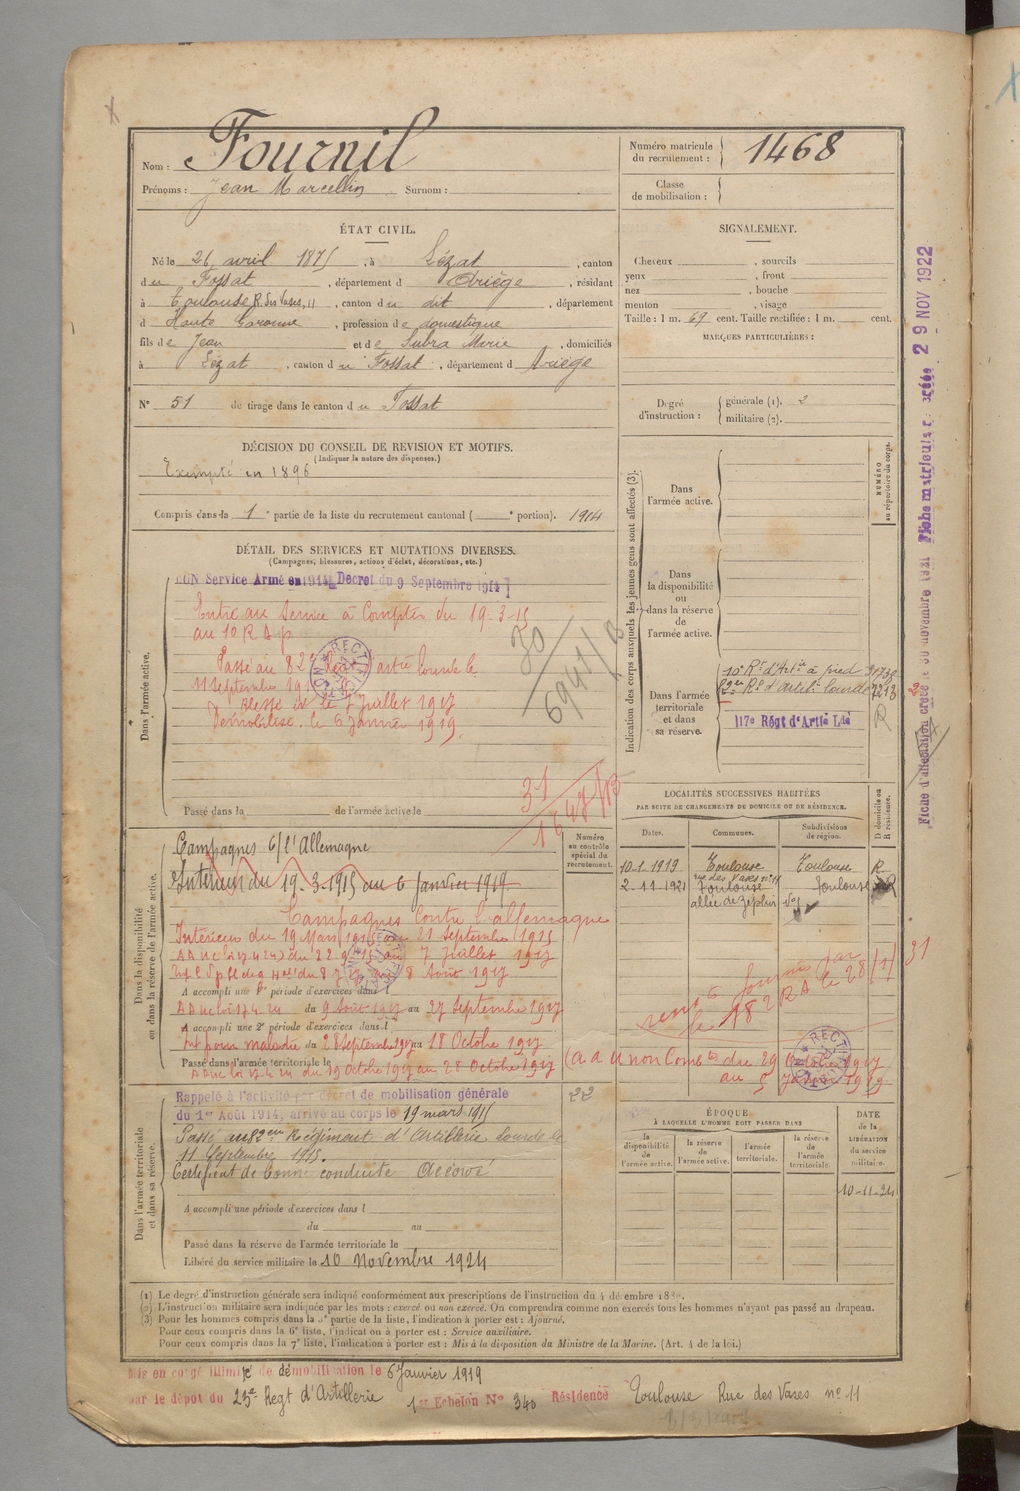 Nom : Fournil
Prénoms : Jean Marcellin Surnom :
Numéro matricule du recrutement : 1468
Classe de mobilisation :
ÉTAT CIVIL.
Né le 26 avril 1875, à Lézat, canton
du Fossat, département d Ariège, résidant
à Toulouse R. des Vases, 11, canton du dit, département
d Haute Garonne, profession de domestique
fils de Jean et de Subra Marie, domiciliés
à Lézat, canton du Fossat, département d Ariège
N° 51 de tirage dans le canton du Fossat
SIGNALEMENT.
Cheveux , sourcils
yeux , front
nez , bouche
menton , visage
Taille : 1 m. 69 cent. Taille rectifiée : 1 m. cent.
MARQUES PARTICULIÈRES :
Degré d'instruction : générale (1). 2
militaire (2).
DÉCISION DU CONSEIL DE REVISION ET MOTIFS.
(Indiquer la nature des dispenses.)
Exempté en 1896
Compris dans la 1e partie de la liste du recrutement cantonal ( e portion). 1914
DÉTAIL DES SERVICES ET MUTATIONS DIVERSES.
(Campagnes, blessures, actions d'éclat, décorations, etc.)
Service Armé en 1914 Décret du 9 Septembre 1914
Dans l'armée active.
Entré au Service à Compter du 19-3-15
au 10 R A p
Passé au 82e artie lourde le
11 Septembre
Blessé le 7 Juillet 1917
Démobilisé le 6 Janvier 1919.
30
6941/B
31
Passé dans la de l'armée active le
Indication des corps auxquels les jeunes gens sont affectés (3).
NUMÉRO au répertoire du corps.
Dans l'armée active.
Dans la disponibilité ou dans la réserve de l'armée active.
Dans l'armée territoriale et dans sa réserve.
10e Rt d'Artie à pied
82e Rt d'artie lourde 7213
117e Régt d'Artie Lde R
LOCALITÉS SUCCESSIVES HABITÉES
PAR SUITE DE CHANGEMENTS DE DOMICILE OU DE RÉSIDENCE.
Dates. Communes. Subdivisions de région. D domicile ou R résidence.
10-1-1919 Toulouse rue des Vases n° 11 Toulouse R
2-11-1921 Toulouse allée de Zéphir Toulouse R
Dans la disponibilité ou dans la réserve de l'armée active.
Numéro au contrôle spécial du recrutement.
Campagnes c/ l'Allemagne
Intérieur du 19-3-1915 au 6 Janvier 1919
Campagnes Contre l'allemagne
Intérieur du 19 Mars 1915 au 21 Septembre 1915
7 Juillet 1917
8 Août 1917
A accompli une 1re période d'exercices dans l
du 9 Août 1917 au 27 Septembre 1917
A accompli une 2e période d'exercices dans l
Int pour maladie du 28 Septembre 1917 au 18 Octobre 1917
Passé dans l'armée territoriale le
du 19 Octobre 1917 au 28 Octobre 1917
du 29 Octobre 1917
au 5 Janvier 1919
Dans l'armée territoriale et dans sa réserve.
Rappelé à l'activité par décret de mobilisation générale
du 1er Août 1914, arrivé au corps le 19 mars 1915
Passé au 82em Régiment d'Artillerie lourde le
11 Septembre 1915.
Certificat de bonne conduite Accordé
22
A accompli une période d'exercices dans l
du au
Passé dans la réserve de l'armée territoriale le
Libéré du service militaire le 10 Novembre 1924
ÉPOQUE
À LAQUELLE L'HOMME DOIT PASSER DANS
la disponibilité de l'armée active. la réserve de l'armée active. l'armée territoriale. la réserve de l'armée territoriale.
DATE de la LIBÉRATION du service militaire.
10-11-24
(1) Le degré d'instruction générale sera indiqué conformément aux prescriptions de l'instruction du 4 décembre
(2) L'instruction militaire sera indiquée par les mots : exercé ou non exercé. On comprendra comme non exercés tous les hommes n'ayant pas passé au drapeau.
(3) Pour les hommes compris dans la 5e partie de la liste, l'indication à porter est : Ajourné.
Pour ceux compris dans la 6e liste, l'indication à porter est : Service auxiliaire.
Pour ceux compris dans la 7e liste, l'indication à porter est : Mis à la disposition du Ministre de la Marine. (Art. 4 de la loi.)
Mis en congé illimité de démobilisation le 6 Janvier 1919
par le dépôt du 23e Regt d'Artillerie 1er Echelon N° 340 Résidence Toulouse Rue des Vases n° 11
Fiche d'affectation créée le 30 novembre 1921 Fiche matricule 29 NOV 1922